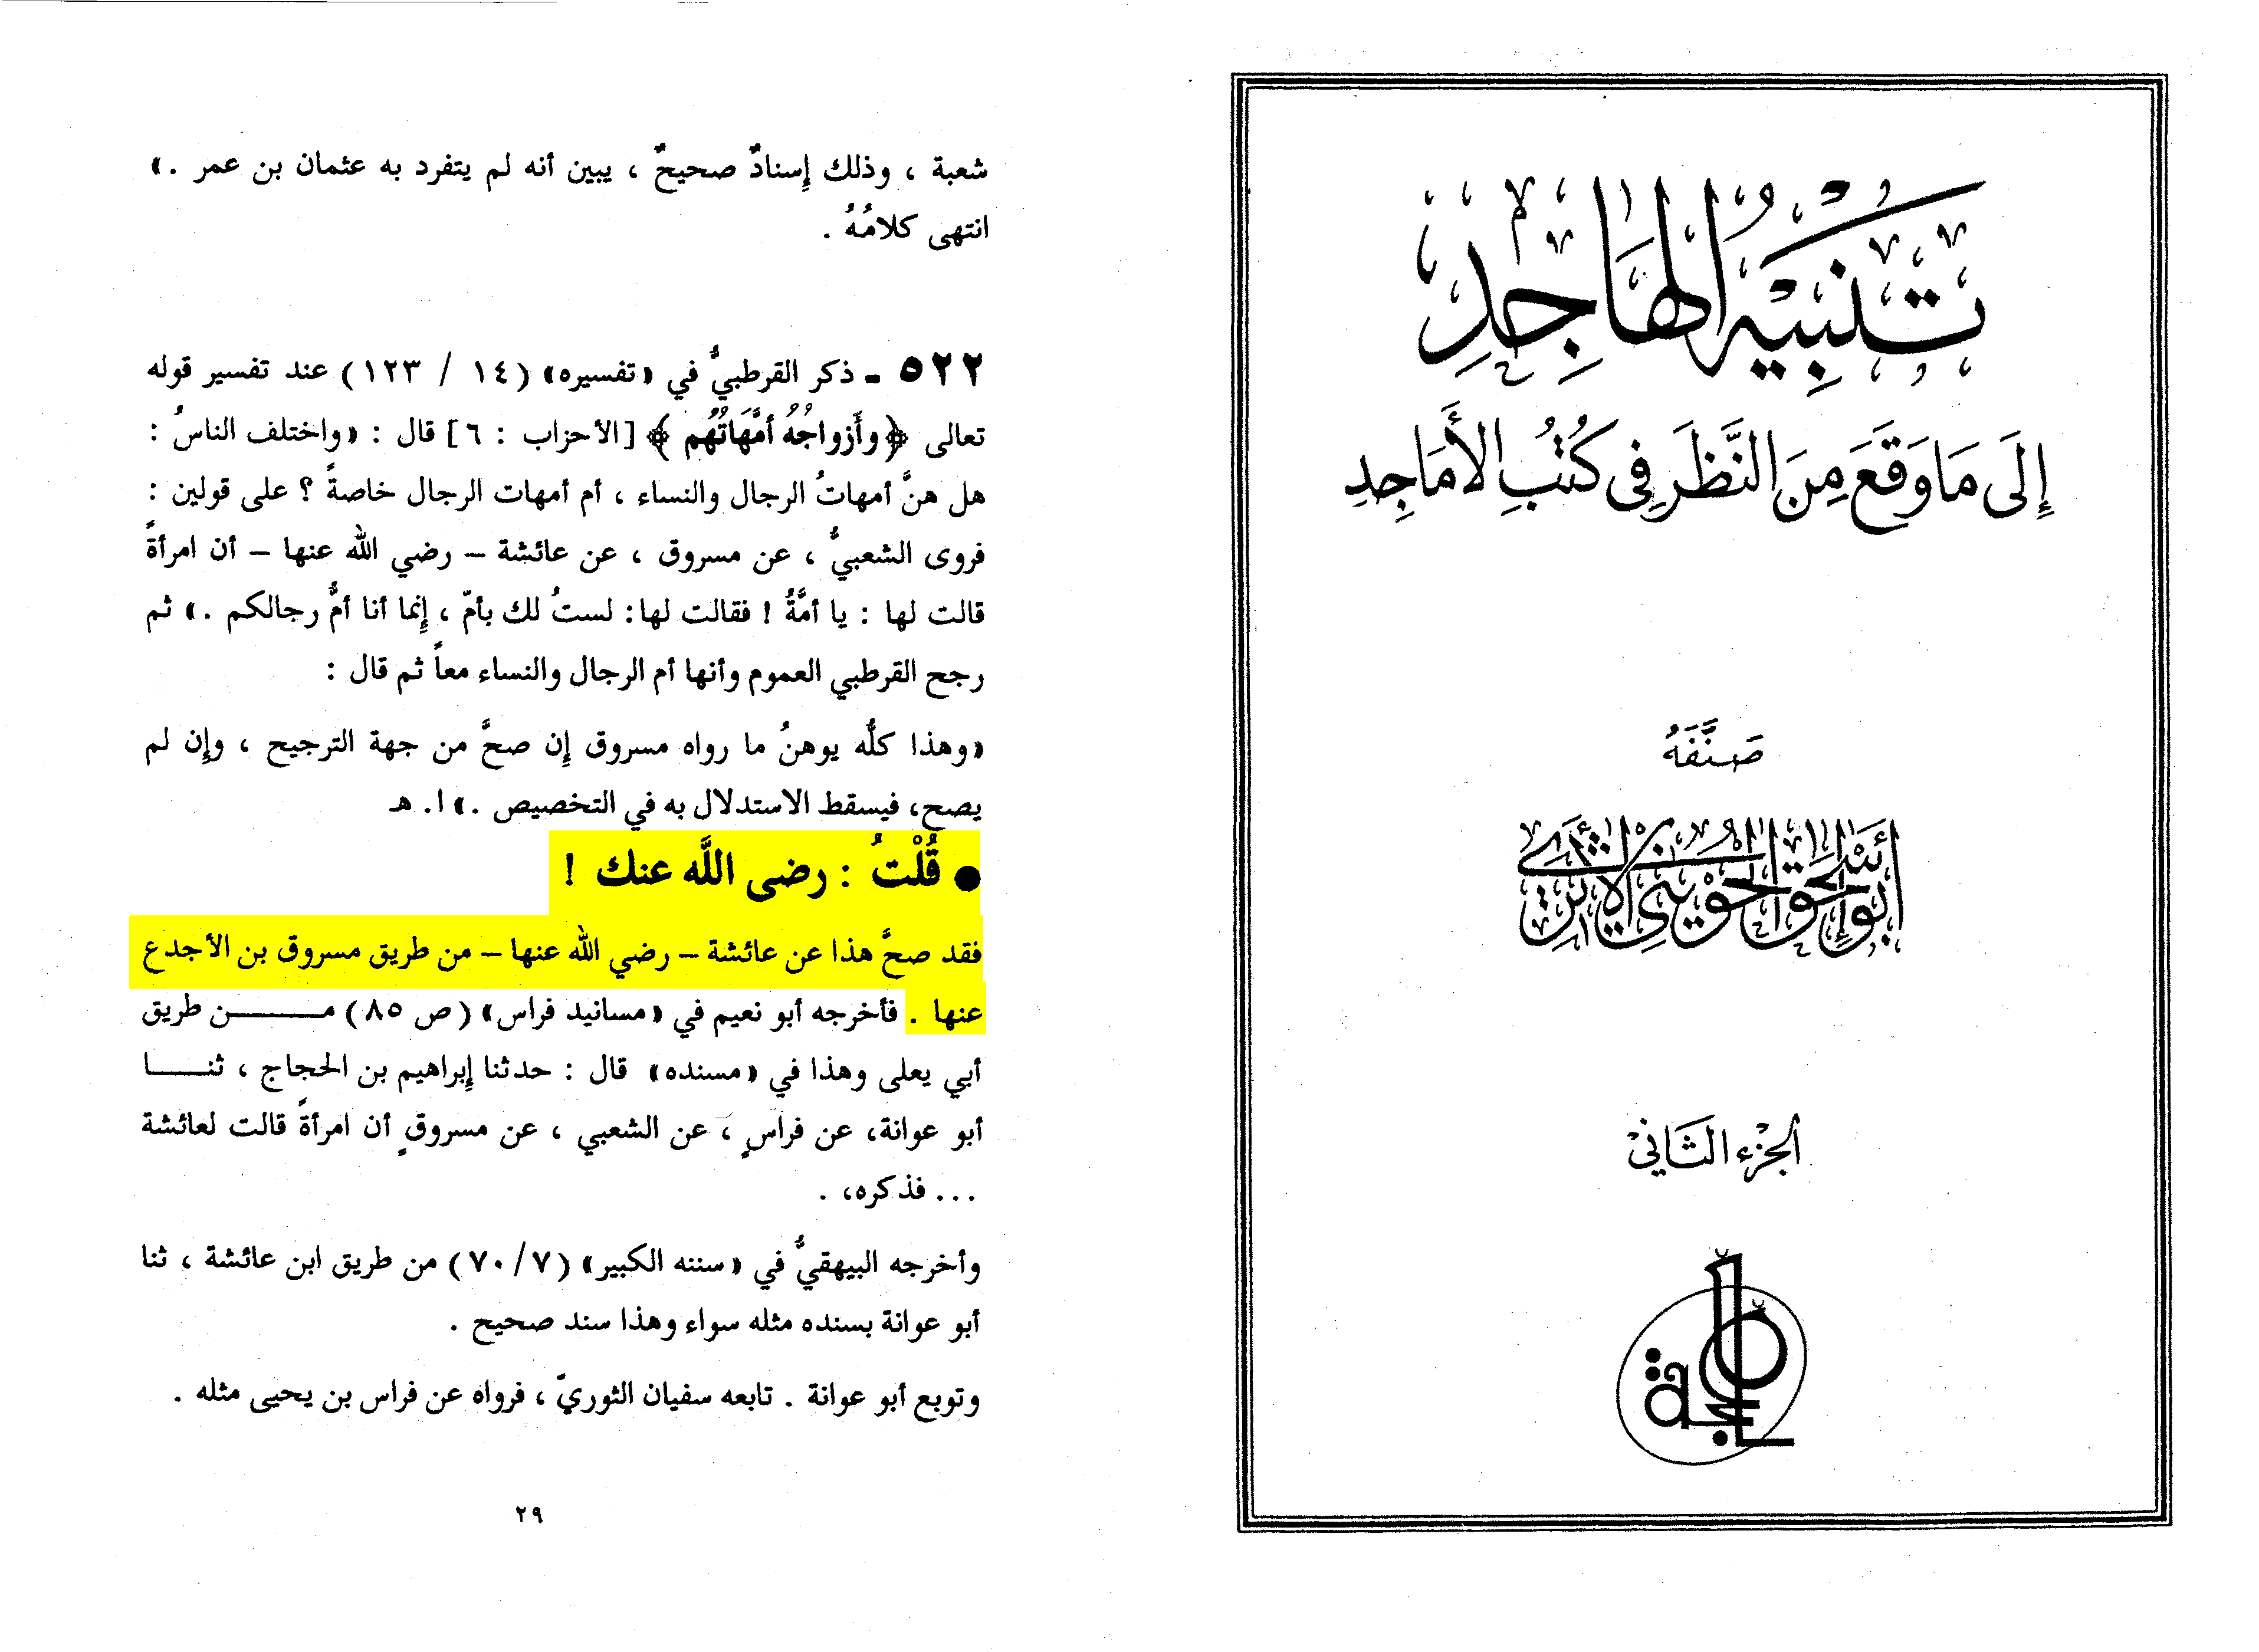 تَنْبِيهُ الهَاجِدِ
إِلَى مَا وَقَعَ مِنَ النَّظَرِ فِي كُتُبِ الأَمَاجِدِ
صَنَّفَهُ
أبو إسحق الحويني الأثري
الجزء الثاني
المحجة
شعبة ، وذلك إِسنادٌ صحيحٌ ، يبين أنه لم يتفرد به عثمان بن عمر .»
انتهى كلامُهُ .
٥٢٢ - ذكر القرطبيُّ في «تفسيره» (١٤ / ١٢٣) عند تفسير قوله
تعالى ﴿وأَزواجُهُ أمَّهَاتُهُم﴾ [الأحزاب : ٦] قال : «واختلف الناسُ :
هل هنَّ أمهاتُ الرجال والنساء ، أم أمهات الرجال خاصةً ؟ على قولين :
فروى الشعبيُّ ، عن مسروق ، عن عائشة – رضي الله عنها – أن امرأةً
قالت لها : يا أمَّةُ ! فقالت لها: لستُ لك بأمّ ، إِنما أنا أمُّ رجالكم .» ثم
رجح القرطبي العموم وأنها أم الرجال والنساء معاً ثم قال :
«وهذا كلُّه يوهنُ ما رواه مسروق إِن صحَّ من جهة الترجيح ، وإِن لم
يصح، فيسقط الاستدلال به في التخصيص .» ا. هـ
● قُلْتُ : رضى اللَّه عنك !
فقد صحَّ هذا عن عائشة – رضي الله عنها – من طريق مسروق بن الأجدع
عنها . فأخرجه أبو نعيم في «مسانيد فراس» (ص ٨٥) مـــن طريق
أبي يعلى وهذا في «مسنده» قال : حدثنا إِبراهيم بن الحجاج ، ثنـــا
أبو عوانة، عن فراسٍ ، عن الشعبي ، عن مسروقٍ أن امرأةً قالت لعائشة
... فذكره، .
وأخرجه البيهقيُّ في «سننه الكبير» (٧/ ٧٠) من طريق ابن عائشة ، ثنا
أبو عوانة بسنده مثله سواء وهذا سند صحيح .
وتوبع أبو عوانة . تابعه سفيان الثوريّ ، فرواه عن فراس بن يحيى مثله .
٢٩